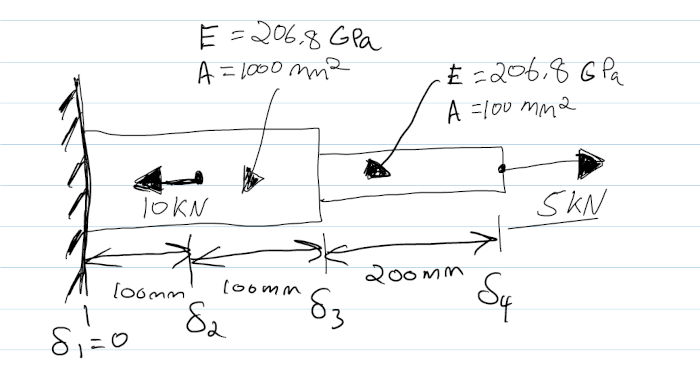 E = 206.8 GPa
A = 1000 mm²
E = 206.8 GPa
A = 100 mm²
10KN
5KN
100mm
100mm
200mm
δ₁ = 0
δ₂
δ₃
δ₄